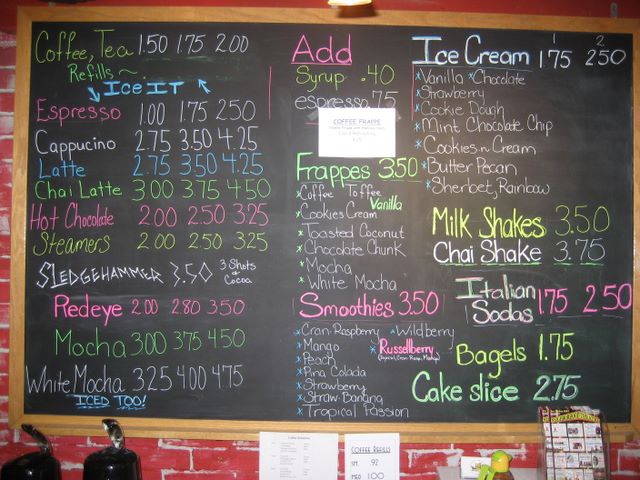 Coffee, Tea 1.50 1.75 2.00
Refills ~
Ice IT
Espresso 1.00 1.75 2.50
Cappucino 2.75 3.50 4.25
Latte 2.75 3.50 4.25
Chai Latte 3.00 3.75 4.50
Hot Chocolate 2.00 2.50 3.25
Steamers 2.00 2.50 3.25
SLEDGEHAMMER 3.50 3 Shots & Cocoa
Redeye 2.00 2.80 3.50
Mocha 3.00 3.75 4.50
White Mocha 3.25 4.00 4.75
ICED TOO!
Add
Syrup .40
espresso .75
COFFEE FRAPPE
Frappes 3.50
*Coffee Toffee
Vanilla
*Cookies Cream
*Toasted Coconut
*Chocolate Chunk
*Mocha
*White Mocha
Smoothies 3.50
*Cran-Raspberry *Wildberry
*Mango *Russellberry
*Peach
*Pina Colada
*Strawberry
*Straw-Banana
*Tropical Passion
1 2
Ice Cream 1.75 2.50
*Vanilla *Chocolate
*Strawberry
*Cookie Dough
*Mint Chocolate Chip
*Cookies n Cream
*Butter Pecan
*Sherbet, Rainbow
Milk Shakes 3.50
Chai Shake 3.75
Italian Sodas 1.75 2.50
Bagels 1.75
Cake slice 2.75
COFFEE REFILLS
SM .92
MED 1.00